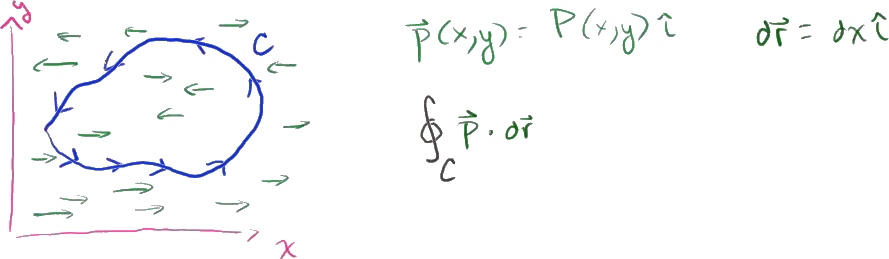 y
C
x
p⃗(x,y) = P(x,y) î
dr⃗ = dx î
∮_C p⃗ · dr⃗